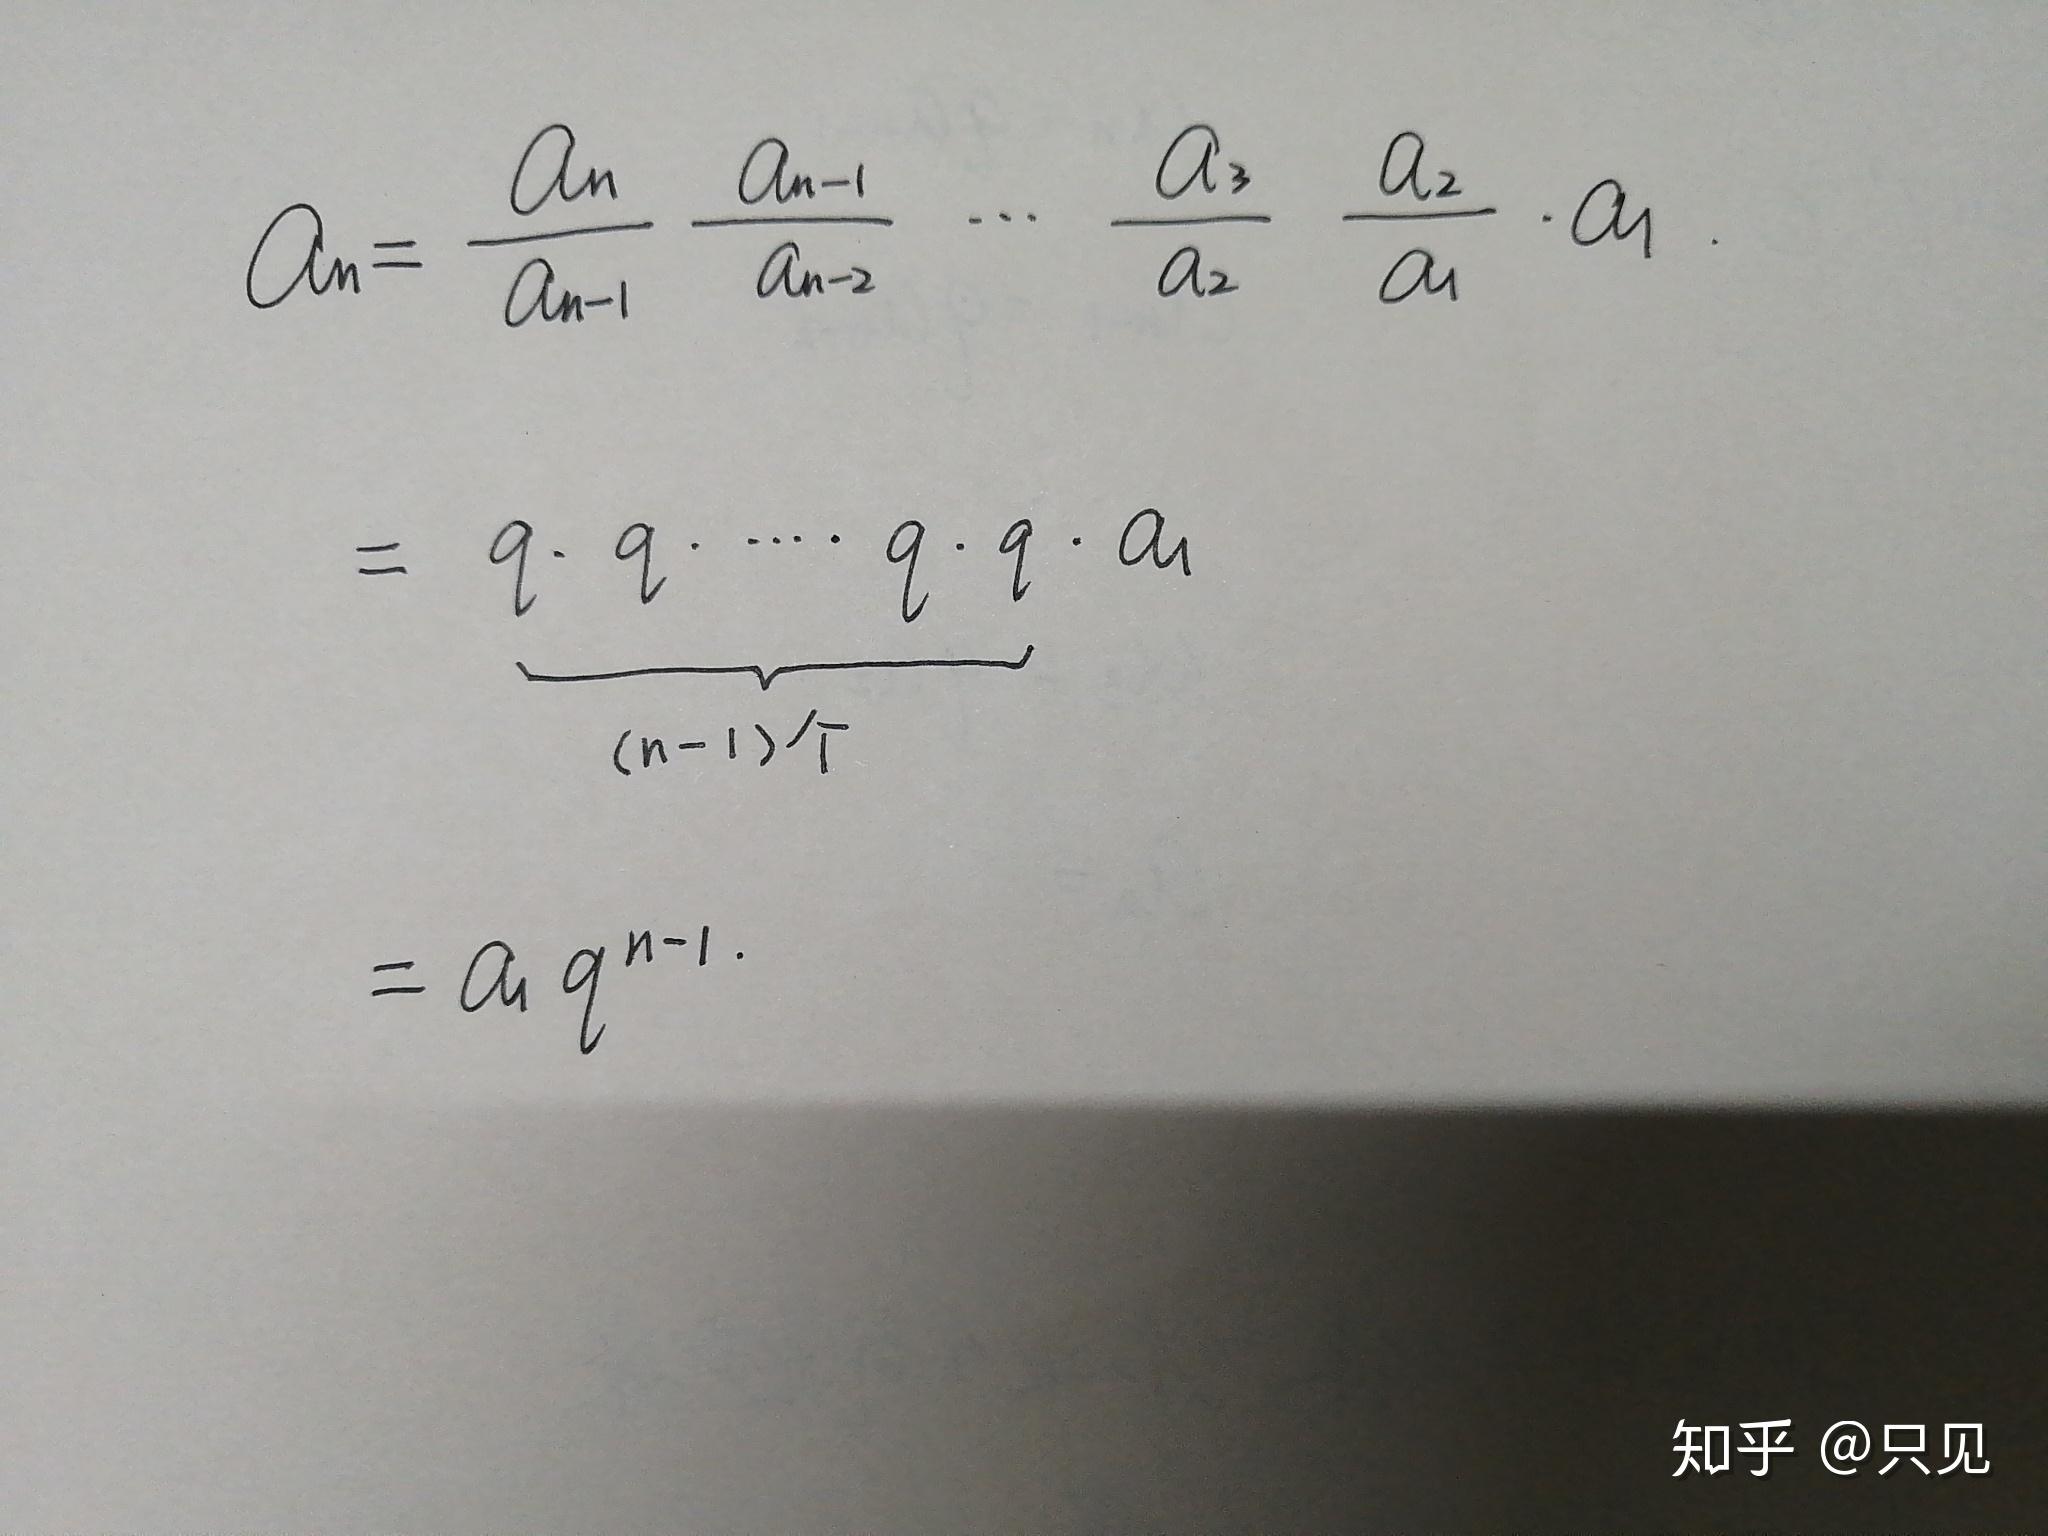 aₙ = aₙ/aₙ₋₁ aₙ₋₁/aₙ₋₂ … a₃/a₂ a₂/a₁ · a₁ .
= q · q · ···· · q · q · a₁
(n-1)个
= a₁ qⁿ⁻¹.
知乎 @只见